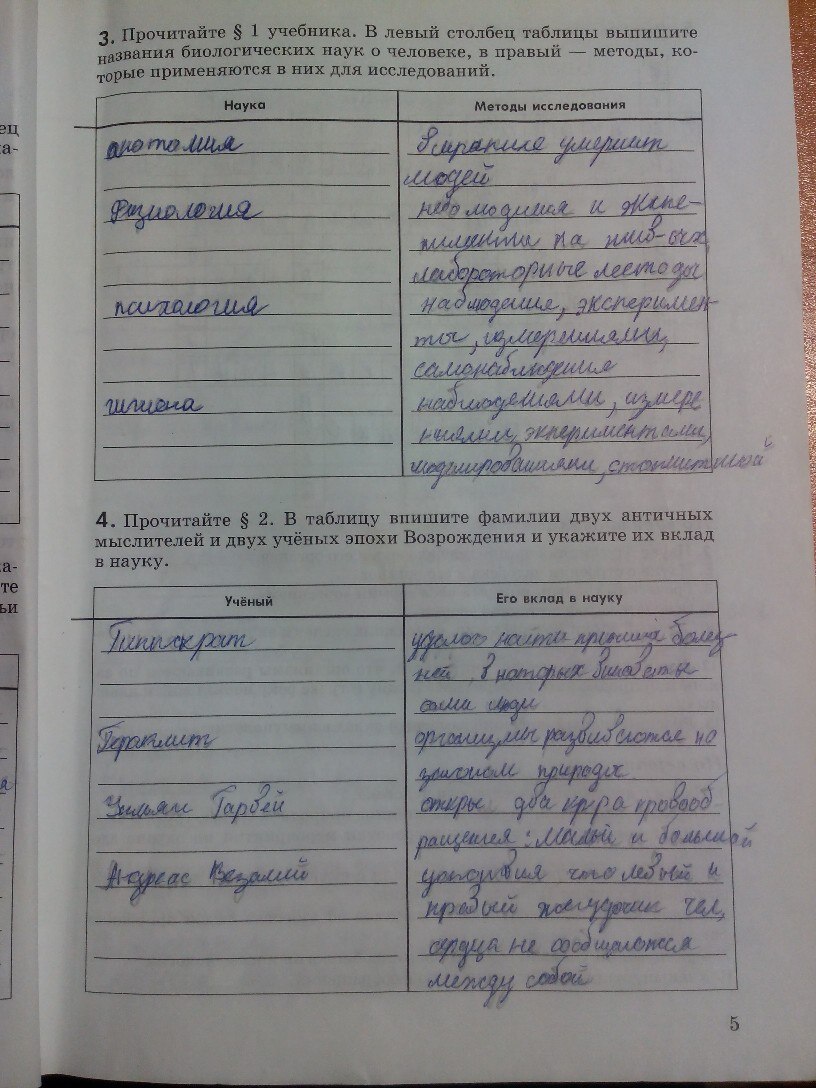 3. Прочитайте § 1 учебника. В левый столбец таблицы выпишите
названия биологических наук о человеке, в правый — методы, ко-
торые применяются в них для исследований.
Наука
Методы исследования
анатомия
умерших
людей
физиология
и экспе-
на
лабораторные методы
психология
наблюдения, эксперимен-
ты, измерениями,
самонаблюдения
гигиена
наблюдениями, измере
ниями, экпериментами,
моделированиями,
4. Прочитайте § 2. В таблицу впишите фамилии двух античных
мыслителей и двух учёных эпохи Возрождения и укажите их вклад
в науку.
Учёный
Его вклад в науку
Гиппократ
найти болез
ней в которых виноваты
сами люди
Гераклит
организмы развиваются по
законам природы
Уильям Гарвей
откры два круга кровооб
ращения: малый и большой
Андреас Везалий
что левый и
правый желудочик чел,
сердца не сообщаются
между собой
5
ец
ка-
ка-
те
ьи
а